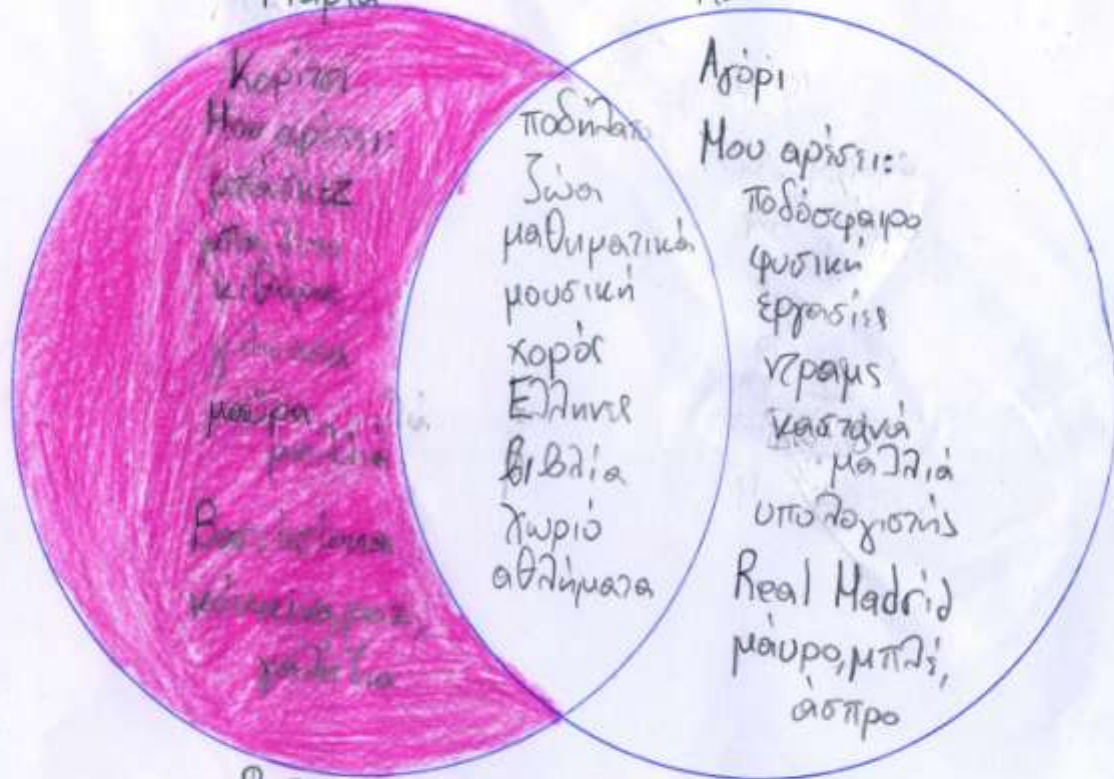 Μαρία
Κορίτσι
Μου αρέσει:
μπάσκετ
κιθάρα
μαύρα
μαλλιά
γαλάζια
ποδήλατο
ζώα
μαθηματικά
μουσική
χορός
Έλληνες
βιβλία
χωριό
αθλήματα
Αγόρι
Μου αρέσει:
ποδόσφαιρο
φυσική
εργασίες
ντραμς
καστανά
μαλλιά
υπολογιστής
Real Madrid
μάυρο, μπλέ,
άσπρο